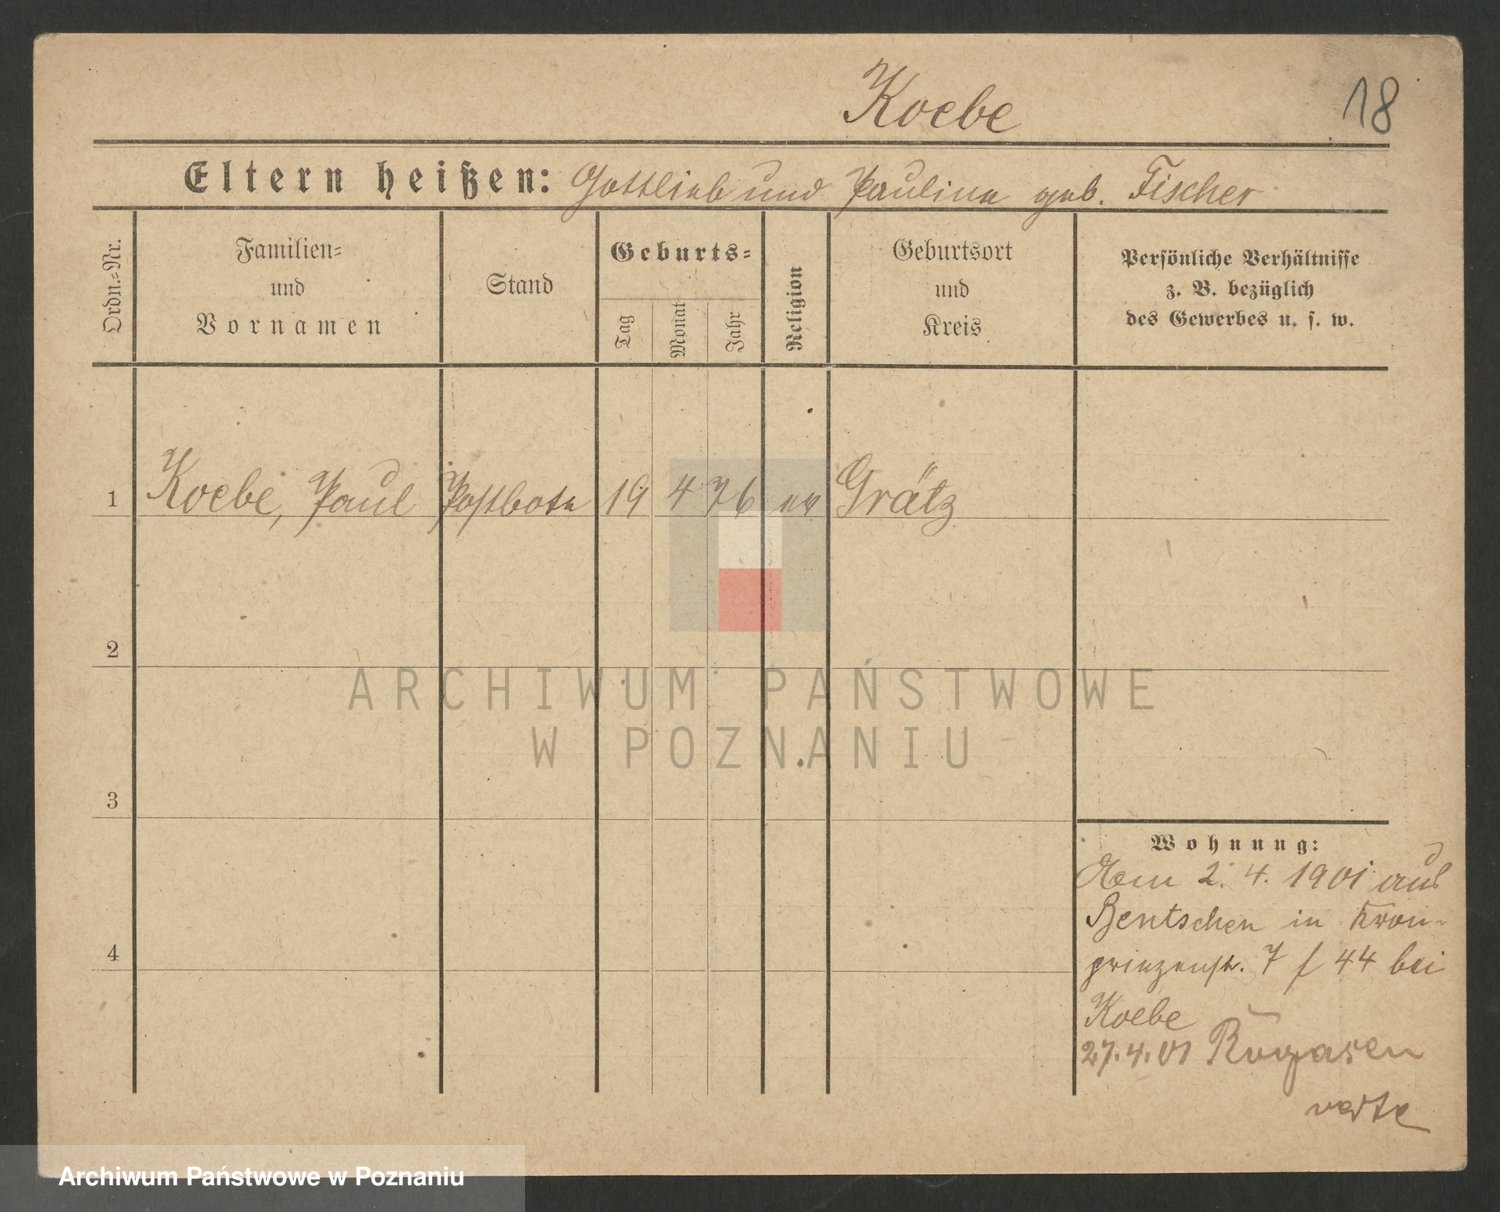 Koebe
18
Eltern heißen: Gottlieb und Pauline geb. Fischer
Ordn.=Nr.
Familien=
und
Vornamen
Stand
Geburts=
Tag
Monat
Jahr
Religion
Geburtsort
und
Kreis
Persönliche Verhältnisse
z. B. bezüglich
des Gewerbes u. s. w.
1 Koebe, Paul Postbote 19 4 76 ev Grätz
2
ARCHIWUM PAŃSTWOWE
W POZNANIU
3
Wohnung:
2. 4. 1901 aus
Bentschen in Kron-
prinzenstr. 7 f 44 bei
Koebe
27.4.01 Rogasen
verte
4
Archiwum Państwowe w Poznaniu